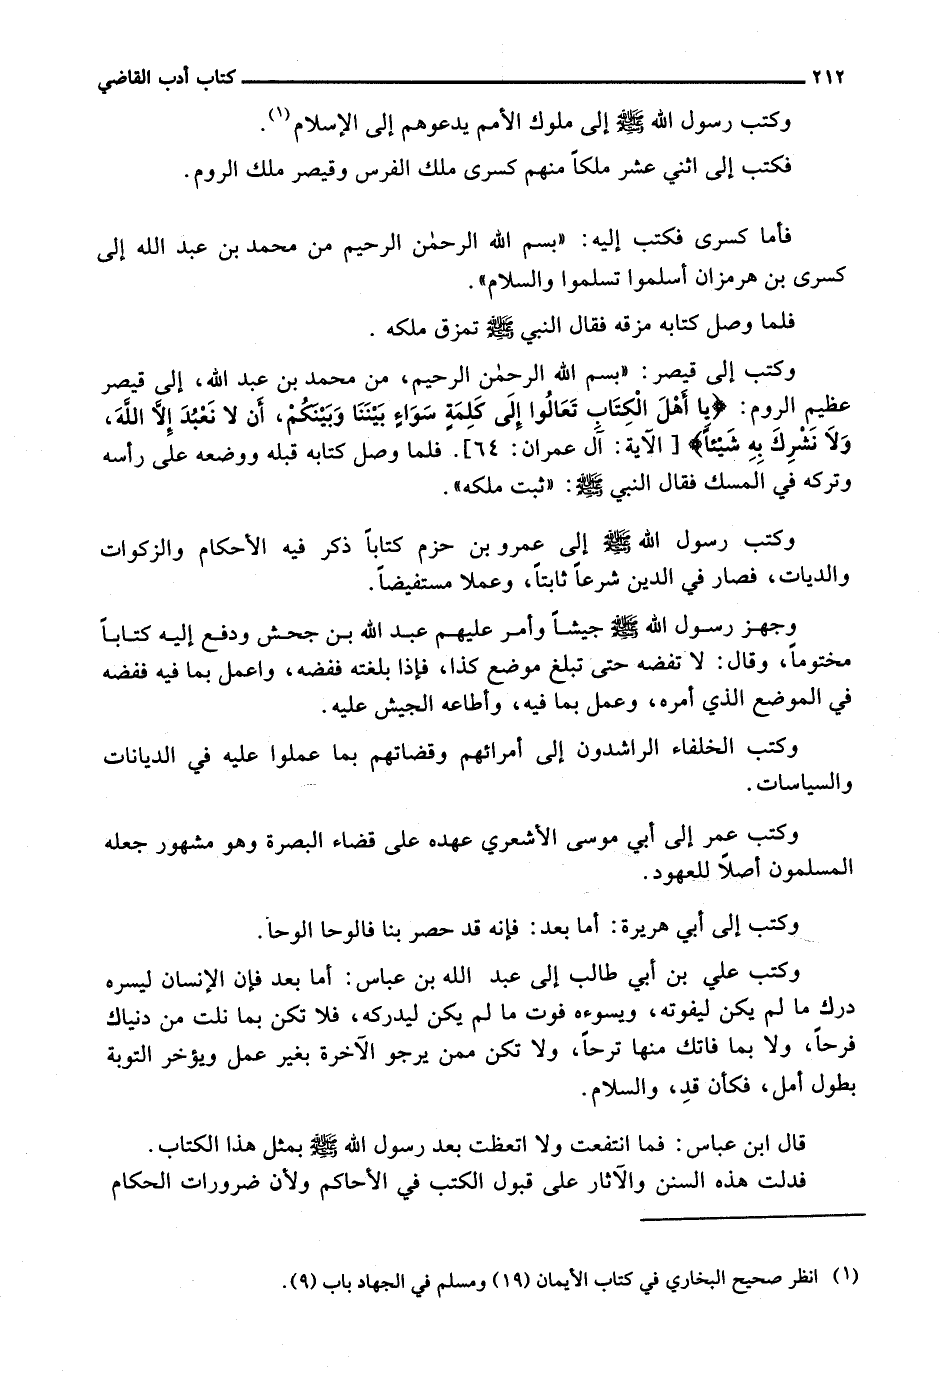 ٢١٢ كتاب أدب القاضي
وكتب رسول الله ﷺ إلى ملوك الأمم يدعوهم إلى الإسلام(١).
فكتب إلى اثني عشر ملكاً منهم كسرى ملك الفرس وقيصر ملك الروم.
فأما كسرى فكتب إليه: «بسم الله الرحمٰن الرحيم من محمد بن عبد الله إلى
كسرى بن هرمزان أسلموا تسلموا والسلام».
فلما وصل كتابه مزقه فقال النبي ﷺ تمزق ملكه.
وكتب إلى قيصر: «بسم الله الرحمٰن الرحيم، من محمد بن عبد الله، إلى قيصر
عظيم الروم: ﴿يا أَهْلَ الْكِتَابِ تَعَالُوا إِلَى كَلِمَةٍ سَوَاءٍ بَيْنَنَا وَبَيْنَكُمْ، أَن لا نَعْبُدَ إِلاَّ اللَّهَ،
وَلَا نَشْرِكَ بِهِ شَيْئاً﴾ [الآية: آل عمران: ٦٤]. فلما وصل كتابه قبله ووضعه على رأسه
وتركه في المسك فقال النبي ﷺ: «ثبت ملكه».
وكتب رسول الله ﷺ إلى عمرو بن حزم كتاباً ذكر فيه الأحكام والزكوات
والديات، فصار في الدين شرعاً ثابتاً، وعملا مستفيضاً.
وجهز رسول الله ﷺ جيشاً وأمر عليهم عبد الله بن جحش ودفع إليه كتاباً
مختوماً، وقال: لا تفضه حتى تبلغ موضع كذا، فإذا بلغته ففضه، واعمل بما فيه ففضه
في الموضع الذي أمره، وعمل بما فيه، وأطاعه الجيش عليه.
وكتب الخلفاء الراشدون إلى أمرائهم وقضاتهم بما عملوا عليه في الديانات
والسياسات.
وكتب عمر إلى أبي موسى الأشعري عهده على قضاء البصرة وهو مشهور جعله
المسلمون أصلاً للعهود.
وكتب إلى أبي هريرة: أما بعد: فإنه قد حصر بنا فالوحا الوحا.
وكتب علي بن أبي طالب إلى عبد الله بن عباس: أما بعد فإن الإنسان ليسره
درك ما لم يكن ليفوته، ويسوءه فوت ما لم يكن ليدركه، فلا تكن بما نلت من دنياك
فرحاً، ولا بما فاتك منها ترحاً، ولا تكن ممن يرجو الآخرة بغير عمل ويؤخر التوبة
بطول أمل، فكأن قدِ، والسلام.
قال ابن عباس: فما انتفعت ولا اتعظت بعد رسول الله ﷺ بمثل هذا الكتاب.
فدلت هذه السنن والآثار على قبول الكتب في الأحاكم ولأن ضرورات الحكام
(١) انظر صحيح البخاري في كتاب الأيمان (١٩) ومسلم في الجهاد باب (٩).